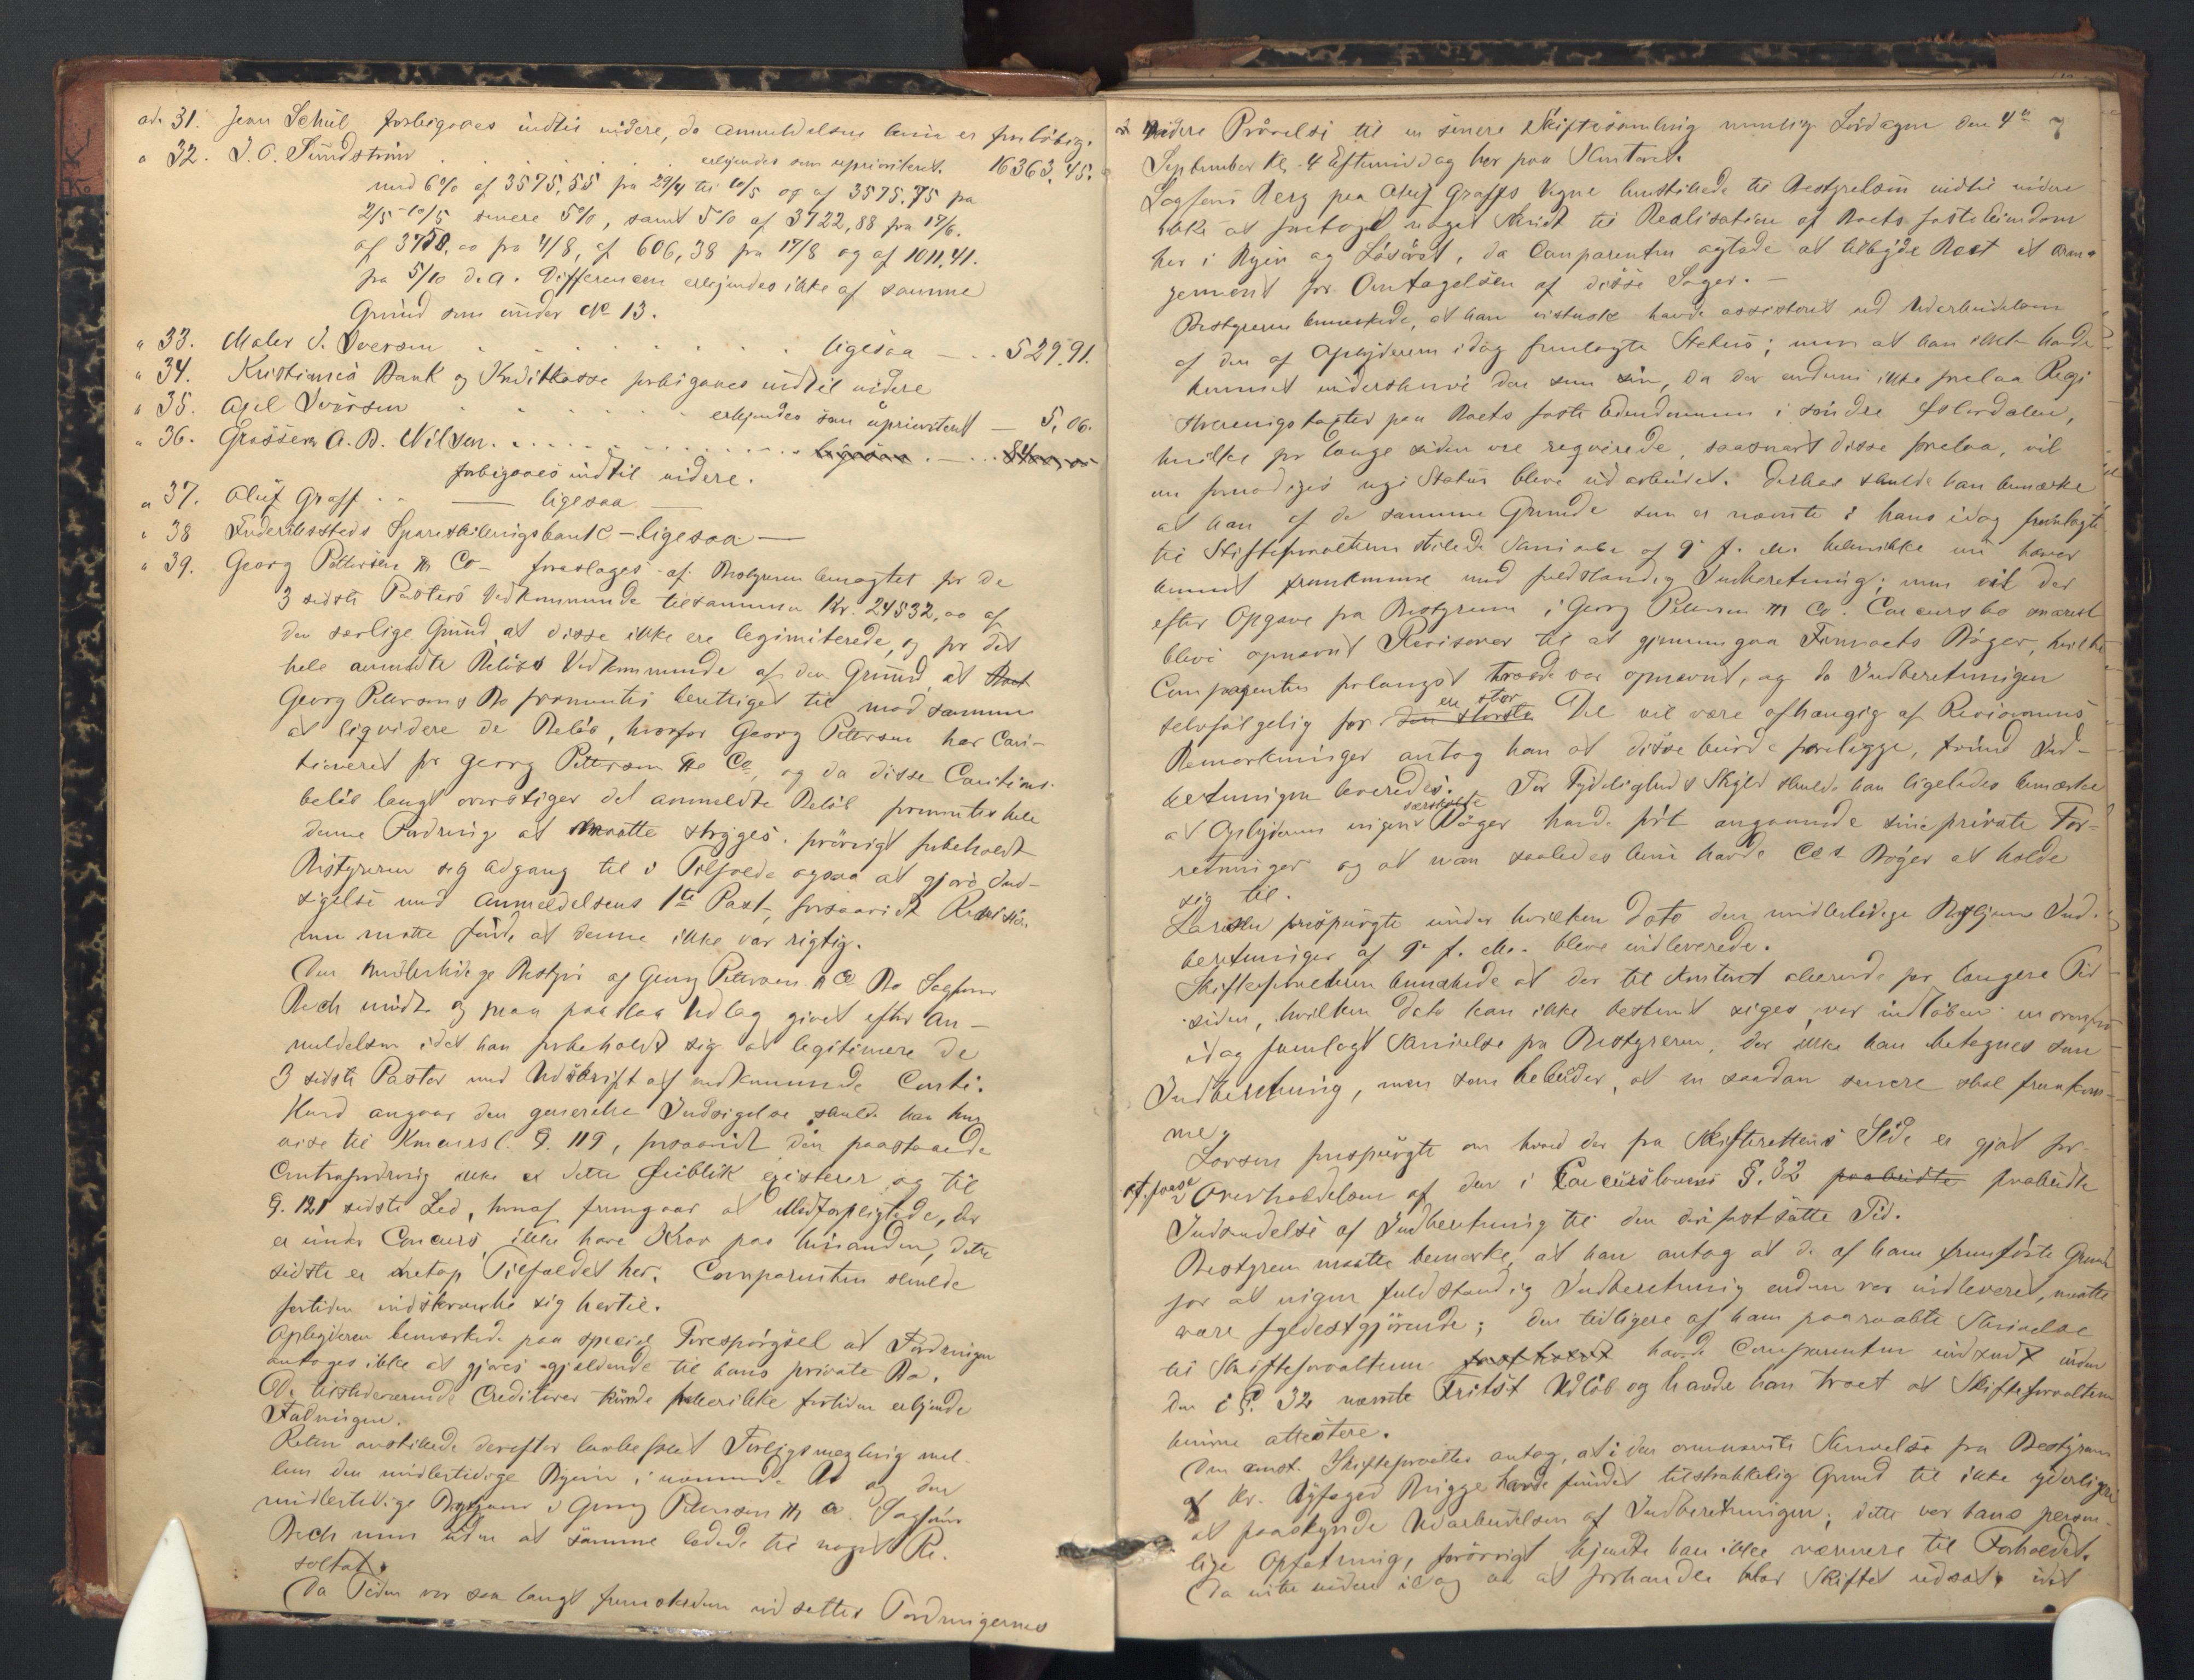 ad. 31. Jean Schül forbigaaes indtil videre, da Anmeldelsen kun er foreløbig.
" 32. J. O. Sundström . . . . . erkjendes som uprioriteret. 16363,45.
med 6% af 3575,55 fra 29/4 til 10/5 og af 3575,75 fra
2/5 - 10/5 senere 5%, samt 5% af 3722,88 fra 17/6.
af 3758,00 fra 4/8, af 606,38 fra 17/8 og af 1011,41.
fra 5/10 d. A. Differencen erkjendes ikke af samme
Grund som under No 13.
" 33. Maler J. Iversen . . . . . ligesaa — . . 529,91.
" 34. Kristiania Bank og Kreditkasse forbigaaes indtil videre
" 35. Axel Iversen . . . . . erkjendes som uprioriteret — 5,06.
" 36. Grosserer A. B. Nilsen . . . . . ligesaa . —
forbigaaes indtil videre.
" 37. Oluf Graff . . — ligesaa —
" 38 Frederikssteds Spareskillingsbank — ligesaa —
" 39. Georg Pettersen & Co — foreslages af Bestyreren benægtet for de
3 sidste Posters Vedkommende tilsammen Kr. 24532,00 af
den særlige Grund at disse ikke ere legimiterede, og for det
hele anmeldte Beløbs Vedkommende af den Grund at Boet
Georg Petersens Bo formentes berettiget til mod samme
at liqvidere de Beløb, hvorfor Georg Pettersen har Cau-
tioneret for Georg Pettersen & Co, og da disse Cautions-
beløb langt overstiger det anmeldte Beløb formentes hele
denne Fordring at maatte stryges. forøvrigt forbeholdt
Bestyreren sig Adgang til i Tilfælde ogsaa at gjøre Ind-
sigelse mod Anmeldelsens 1ste Post, forsaavidt Revisio-
nen maatte finde, at denne ikke var rigtig.
Den midlertidige Bestyrer af Georg Petersen & Co Bo Sagfører
Bech mødte og maa paastaa Udlag givet efter An-
meldelsen idet han forbeholdt sig at legitimere de
3 sidste Poster med Udskrift af vedkommende Conti.
Hvad angaar den generelle Indsigelse skulde han hen-
vise til Konkursl. §. 119, forsaavidt den paastaaede
Contrafordring ikke i dette Øieblik existerer og til
§. 121 sidste Led, hvoraf fremgaar at Medforpligtede, der
er under Concurs, ikke have Krav paa hinanden, dette
sidste er netop Tilfældet her. Comparenten skulde
fortiden indskrænke sig hertil.
Opbyderen bemærkede paa speciel Forespørgsel at Fordringen
antages ikke at gjøres gjældende til hans private Bo.
De tilstedeværende Creditorer kunde heller ikke fortiden erkjende
Fordringen.
Retten anstillede derefter lovbefalet Forligsmægling mel-
lem den midlertidige Bestyrer i nærværende Bo og den
midlertidige Bestyrer i Georg Petersen & Co. Sagfører
Bech men uden at samme ledede til noget Re-
sultat.
Da Tiden var saa langt fremskreden udsættes Fordringernes
videre Prøvelse til en senere Skiftesamling nemlig Lørdagen den 4de
September Kl. 4 Eftermiddag her paa Kontoret.
Sagfører Berg paa Oluf Graffs Vegne henstillede til Bestyrelsen indtil videre
ikke at foretage noget Skridt til Realisation af Boets faste Eiendom
her i Byen og Løsøret, da Comparenten agtede at tilbyde Boet et Arran-
gement for Overtagelsen af disse Sager. —
Bestyreren bemærkede, at han vistnok havde assisteret ved Udarbeidelsen
af den af Opbyderen idag fremlagte Status; men at han ikke havde
kunnet underskrive den som sin, da der endnu ikke forelaa Regi-
streringsforretning paa Boets faste Eiendomme i søndre Østerdalen,
hvilke for længe siden ere reqvirede, saasnart disse forelaa, vil
en fornøden ny Status blive udarbeidet. Derhos skulde han bemærke
at han af de samme Grunde som er nævnte i hans idag fremlagte
til Skifteforvalteren stilede Skrivelse af 9de f. M. heller ikke nu havde
kunnet fremkomme med fuldstændig Indberetning; men vil der
efter Opgave fra Bestyreren i Georg Petersen & Co. Concursbo snarest
blive opnævnt Revisorer til at gjennemgaa Firmaets Bøger, hvilke
Comparenten forlængst troede var opnævnt, og da Indberetningen
selvfølgelig for den største en stor Del vil være afhængig af Revisorernes
Bemærkninger antog han at disse burde foreligge, forend Ind-
beretningen leveredes. For Tydeligheds Skyld skulde han ligeledes bemærke
at Opbyderen ingen særskilte Bøger havde ført angaaende sine private For-
retninger og at man saaledes kun havde Co's Bøger at holde
sig til.
Larsen forespurgte under hvilken Dato den midlertidige Bestyrers Ind-
beretninger af 9de f. M. bleve indleverede.
Skifteforvalteren bemærkede at der til Kontoret allerede for længere Tid
siden, hvilken Dato kan ikke bestemt siges, var indløben en
idag fremlagt Skrivelse fra Bestyreren, der ikke kan betegnes som
Indberetning, men som bebuder, at en saadan senere skal fremkom-
me.
Larsen forespurgte om hvad der fra Skifterettens Side er gjort for
at paase Overholdelsen af den i Concurslovens §. 32 paabudte paabudte
Indsendelse af Indberetning til den deri fastsatte Tid.
Bestyreren maatte bemærke, at han antog at de af ham fremførte Grunde
for at ingen fuldstændig Indberetning endnu var indleveret, maatte
være fyldestgjørende; den tidligere af ham paaraabte Skrivelse
til Skifteforvalteren havde Comparenten indsendt inden
den i §. 32 nævnte Frists Udløb og havde han troet at Skifteforvalteren
kunne attestere.
Den const. Skifteforvalter antog, at i den ommeldte Skrivelse fra Bestyreren
af Hr. Byfoged Brigge havde fundet tilstrækkelig Grund til ikke yderligere
at paaskynde Udarbeidelsen af Indberetningen; dette var hans person-
lige Opfatning, forøvrigt kjendte han ikke nærmere til Forholdet.
Da intet videre idag var at forhandle blev Skiftet udsat, idet